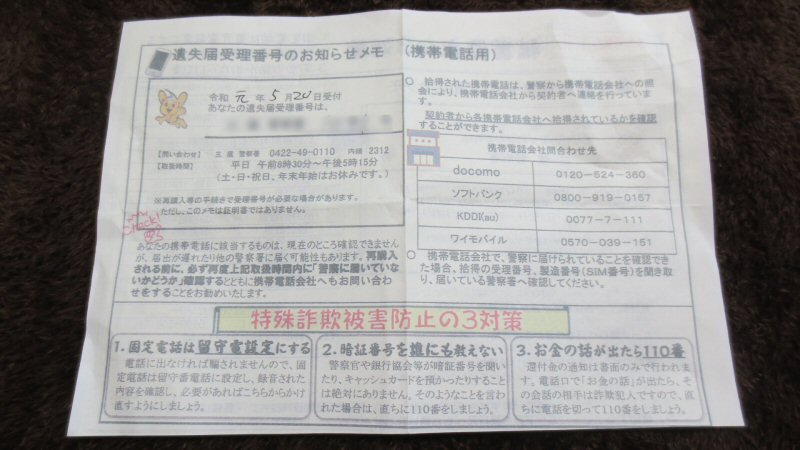 遺失届受理番号のお知らせメモ (携帯電話用)
令和 元 年 5 月 20 日受付
あなたの遺失届受理番号は、
【問い合わせ】 三鷹警察署 0422-49-0110 内線 2312
【取扱時間】 平日 午前8時30分～午後5時15分
(土・日・祝日、年末年始はお休みです。)
※再購入等の手続きで受理番号が必要な場合があります。
ただし、このメモは証明書ではありません。
Check!
あなたの携帯電話に該当するものは、現在のところ確認できません
が、届出が遅れたり他の警察署に届く可能性もあります。再購入
される前に、必ず再度上記取扱時間内に「警察に届いていな
いかどうか」確認するとともに携帯電話会社へもお問い合わ
せをすることをお勧めいたします。
○ 拾得された携帯電話は、警察から携帯電話会社への照
会により、携帯電話会社から契約者へ連絡を行っていま
す。
契約者から各携帯電話会社へ拾得されているかを確認
することができます。
携帯電話会社問合わせ先
docomo 0120-524-360
ソフトバンク 0800-919-0157
KDDI(au) 0077-7-111
ワイモバイル 0570-039-151
○ 携帯電話会社で、警察に届けられていることを確認でき
た場合、拾得の受理番号、製造番号(SIM番号)を聞き取
り、届いている警察署へ確認してください。
特殊詐欺被害防止の3対策
1. 固定電話は留守電設定にする
電話に出なければ騙されませんので、固
定電話は留守番電話に設定し、録音された
内容を確認し、必要があればこちらからかけ
直すようにしましょう。
2. 暗証番号を誰にも教えない
警察官や銀行協会等が暗証番号を聞い
たり、キャッシュカードを預かったりすること
は絶対にありません。そのようなことを言わ
れた場合は、直ちに110番をしましょう。
3. お金の話が出たら110番
還付金の通知は書面のみで行われま
す。電話口で「お金の話」が出たら、そ
の会話の相手は詐欺犯人ですので、直
ちに電話を切って110番をしましょう。